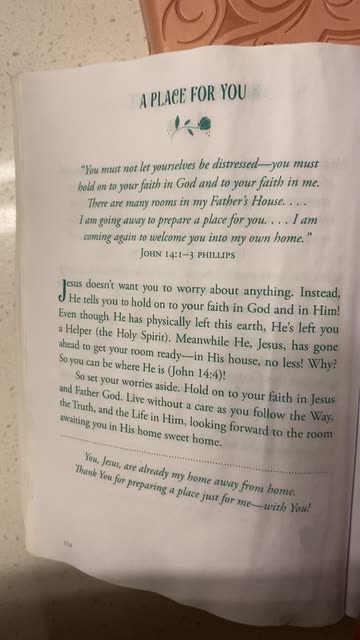 A PLACE FOR YOU
"You must not let yourselves be distressed—you must
hold on to your faith in God and to your faith in me.
There are many rooms in my Father's House. . . .
I am going away to prepare a place for you. . . . I am
coming again to welcome you into my own home."
JOHN 14:1–3 PHILLIPS
Jesus doesn't want you to worry about anything. Instead,
He tells you to hold on to your faith in God and in Him!
Even though He has physically left this earth, He's left you
a Helper (the Holy Spirit). Meanwhile He, Jesus, has gone
ahead to get your room ready—in His house, no less! Why?
So you can be where He is (John 14:4)!
So set your worries aside. Hold on to your faith in Jesus
and Father God. Live without a care as you follow the Way,
the Truth, and the Life in Him, looking forward to the room
awaiting you in His home sweet home.
You, Jesus, are already my home away from home.
Thank You for preparing a place just for me—with You!